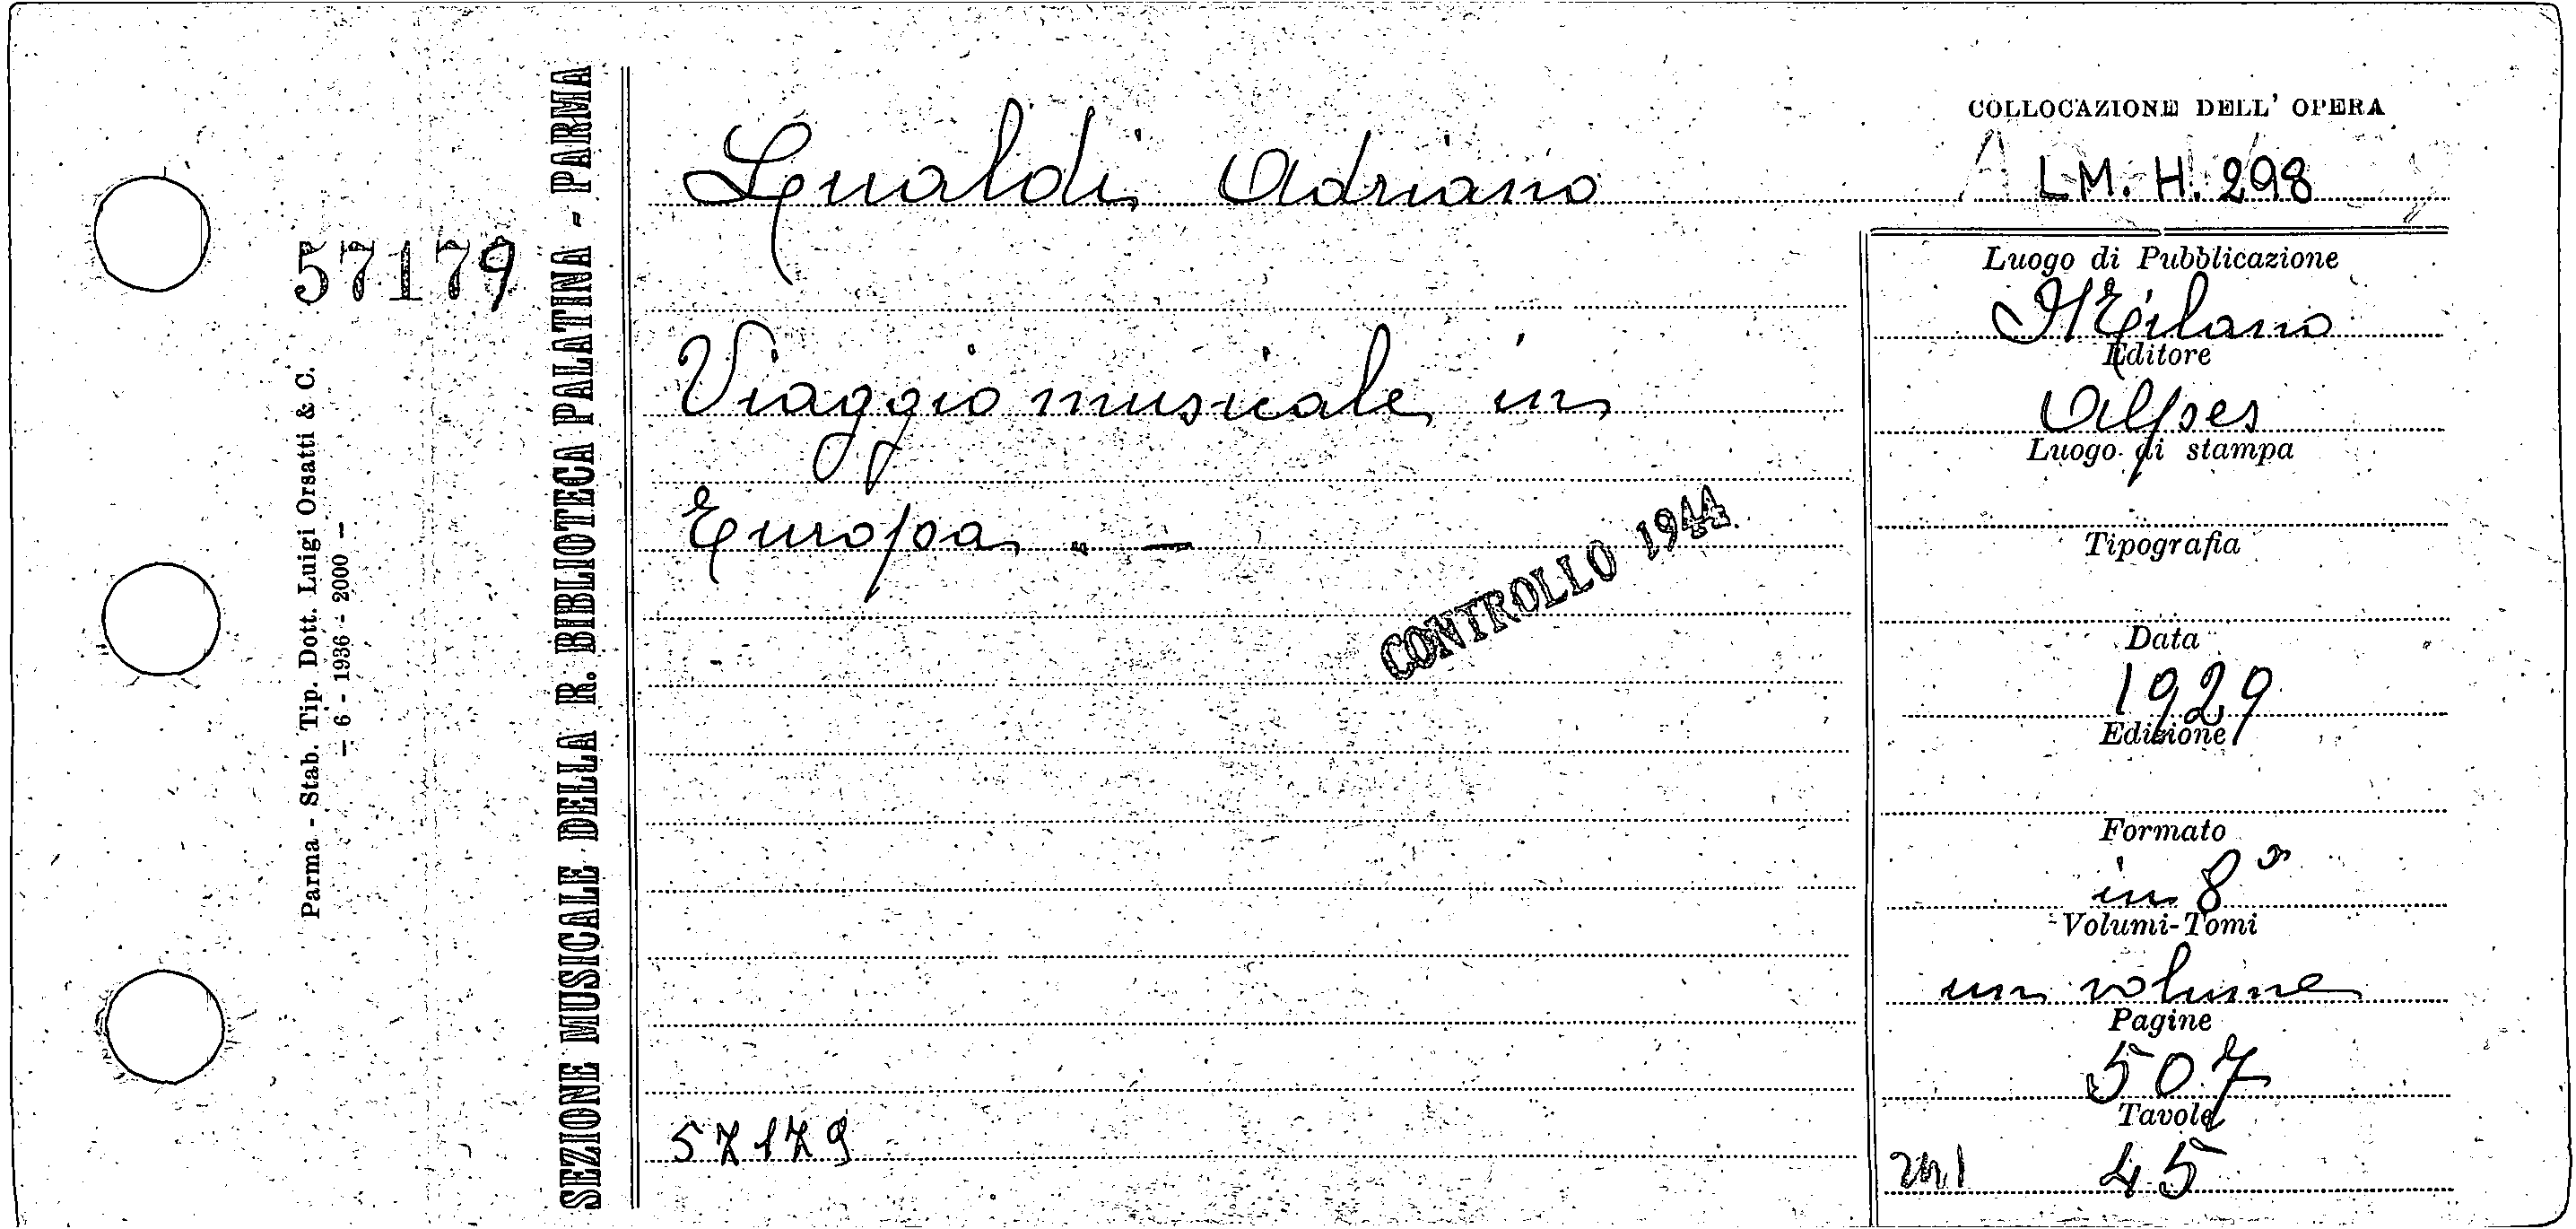 COLLOCAZIONE DELL' OPERA
Lualdi Adriano
LM. H. 298
57179
SEZIONE MUSICALE DELLA R. BIBLIOTECA PALATINA - PARMA
Parma - Stab. Tip. Dott. Luigi Orsatti & C.
— 6 - 1936 - 2000 —
Viaggio musicale in
Europa. —
CONTROLLO 1944
57179
Luogo di Pubblicazione
Milano
Editore
Alpes
Luogo di stampa
Tipografia
Data
1929
Edizione
Formato
in 8°
Volumi-Tomi
un volume
Pagine
507
Tavole
45